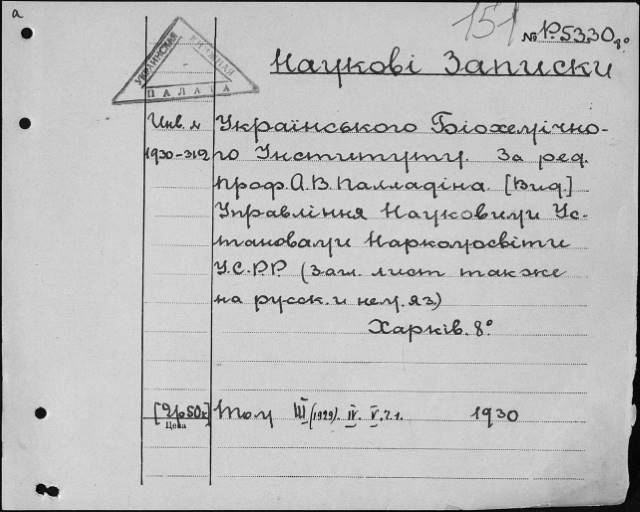 а
151 № Р.5330 8°
УКРАИНСКАЯ КНИЖНАЯ
ПАЛАТА
Наукові Записки
Инв. №
Українського Біохемічно-
1930-312
го Інституту. За ред.
проф. А.В. Палладіна. [Вид.]
Управління Науковими Ус-
тановами Наркомосвіти
У.С.Р.Р. (Заг. лист также
на русск. и нем. яз.)
Харків. 8°
Цена
Том III (1929). IV. V.2.1. 1930